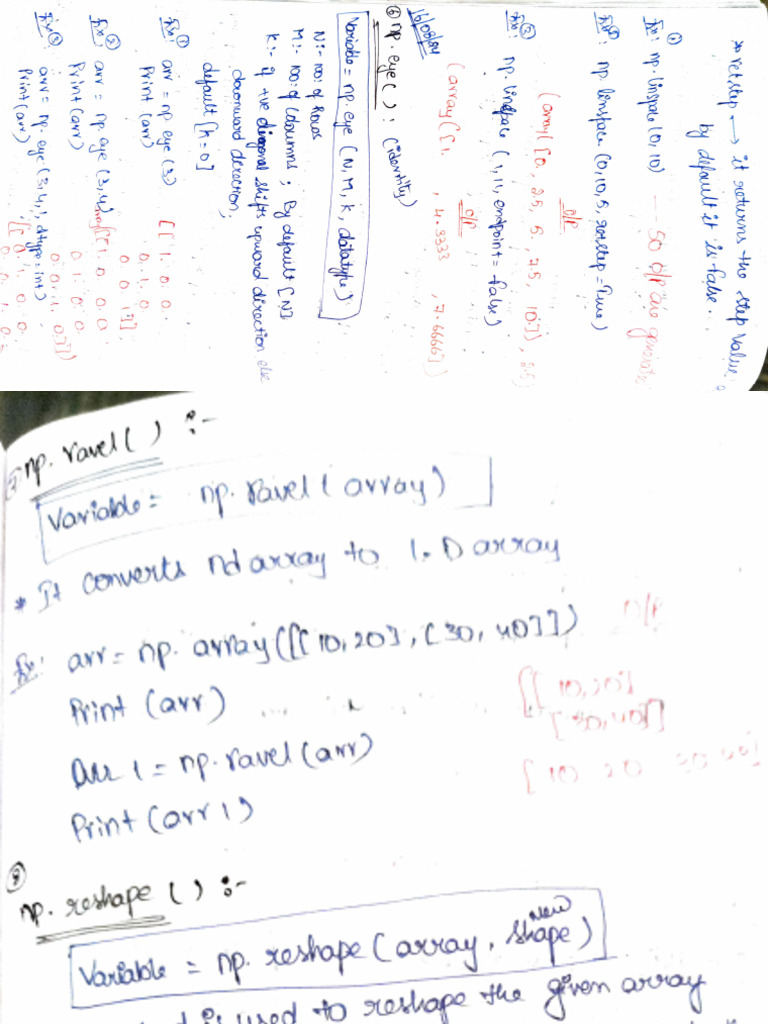 * retstep → it returns the step value.
by default it is false.
①
Ex: np.linspace (0, 10) — 50 O/P are generated
Ex: np linspace (0,10,5, retstep = True)
O/P
(array([0, 2.5, 5, 7.5, 10.]), 2.5)
②
Ex: np. linspace (1, 11, endpoint = false)
O/P
(array([1. , 4.3333 , 7.6666])
16/08/24
⑥ np.eye( ) : (identity)
Variable = np.eye (N, M, k, datatype)
N:- no: of Rows
M:- no: of columns ; By default [N]
K:- if +ve diagonal shifts upward direction else
downward direction,
default [k=0]
①
Ex: arr = np eye (3)
Print (arr)
[[ 1. 0. 0.
0. 1. 0
0 0 1]]
②
Ex: arr = np. eye (3,4)
Print (arr)
[[1. 0. 0. 0
0. 1. 0. 0
0. 0. 1. 0.]])
Ex③: arr = np. eye (3,4,1, dtype=int)
Print (arr)
[[0. 1. 0. 0.
0. 0. 1. 0.
np. ravel( ) :-
Variable = np. ravel( array)
* It converts nd array to 1.D array
Ex: arr = np. array([[10,20],[30,40]])
O/P
Print (arr)
[[10,20]
[30,40]]
Arr 1 = np.ravel(arr)
[10 20 30 40]
Print (arr 1)
⑧
np. reshape ( ) :-
Variable = np. reshape (array, New shape)
is used to reshape the given array